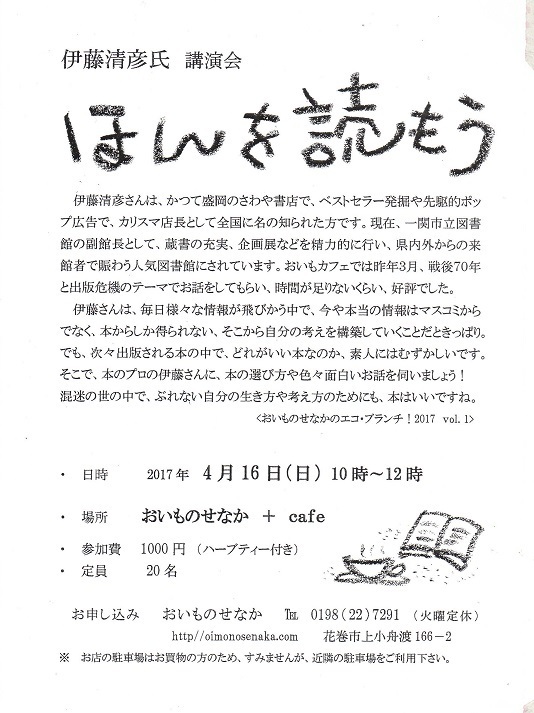 伊藤清彦氏 講演会
ほんを読もう
伊藤清彦さんは、かつて盛岡のさわや書店で、ベストセラー発掘や先駆的ポッ
プ広告で、カリスマ店長として全国に名の知られた方です。現在、一関市立図書
館の副館長として、蔵書の充実、企画展などを精力的に行い、県内外からの来
館者で賑わう人気図書館にされています。おいもカフェでは昨年3月、戦後70年
と出版危機のテーマでお話をしてもらい、時間が足りないくらい、好評でした。
伊藤さんは、毎日様々な情報が飛びかう中で、今や本当の情報はマスコミから
でなく、本からしか得られない、そこから自分の考えを構築していくことだときっぱり。
でも、次々出版される本の中で、どれがいい本なのか、素人にはむずかしいです。
そこで、本のプロの伊藤さんに、本の選び方や色々面白いお話を伺いましょう！
混迷の世の中で、ぶれない自分の生き方や考え方のためにも、本はいいですね。
<おいものせなかのエコ・ブランチ！2017 vol.1>
・ 日時 2017年 4月16日(日) 10時～12時
・ 場所 おいものせなか ＋ cafe
・ 参加費 1000円 （ハーブティー付き）
・ 定員 20名
お申し込み おいものせなか ℡ 0198(22)7291 （火曜定休）
http//oimonosenaka.com 花巻市上小舟渡166－2
※ お店の駐車場はお買物の方のため、すみませんが、近隣の駐車場をご利用下さい。